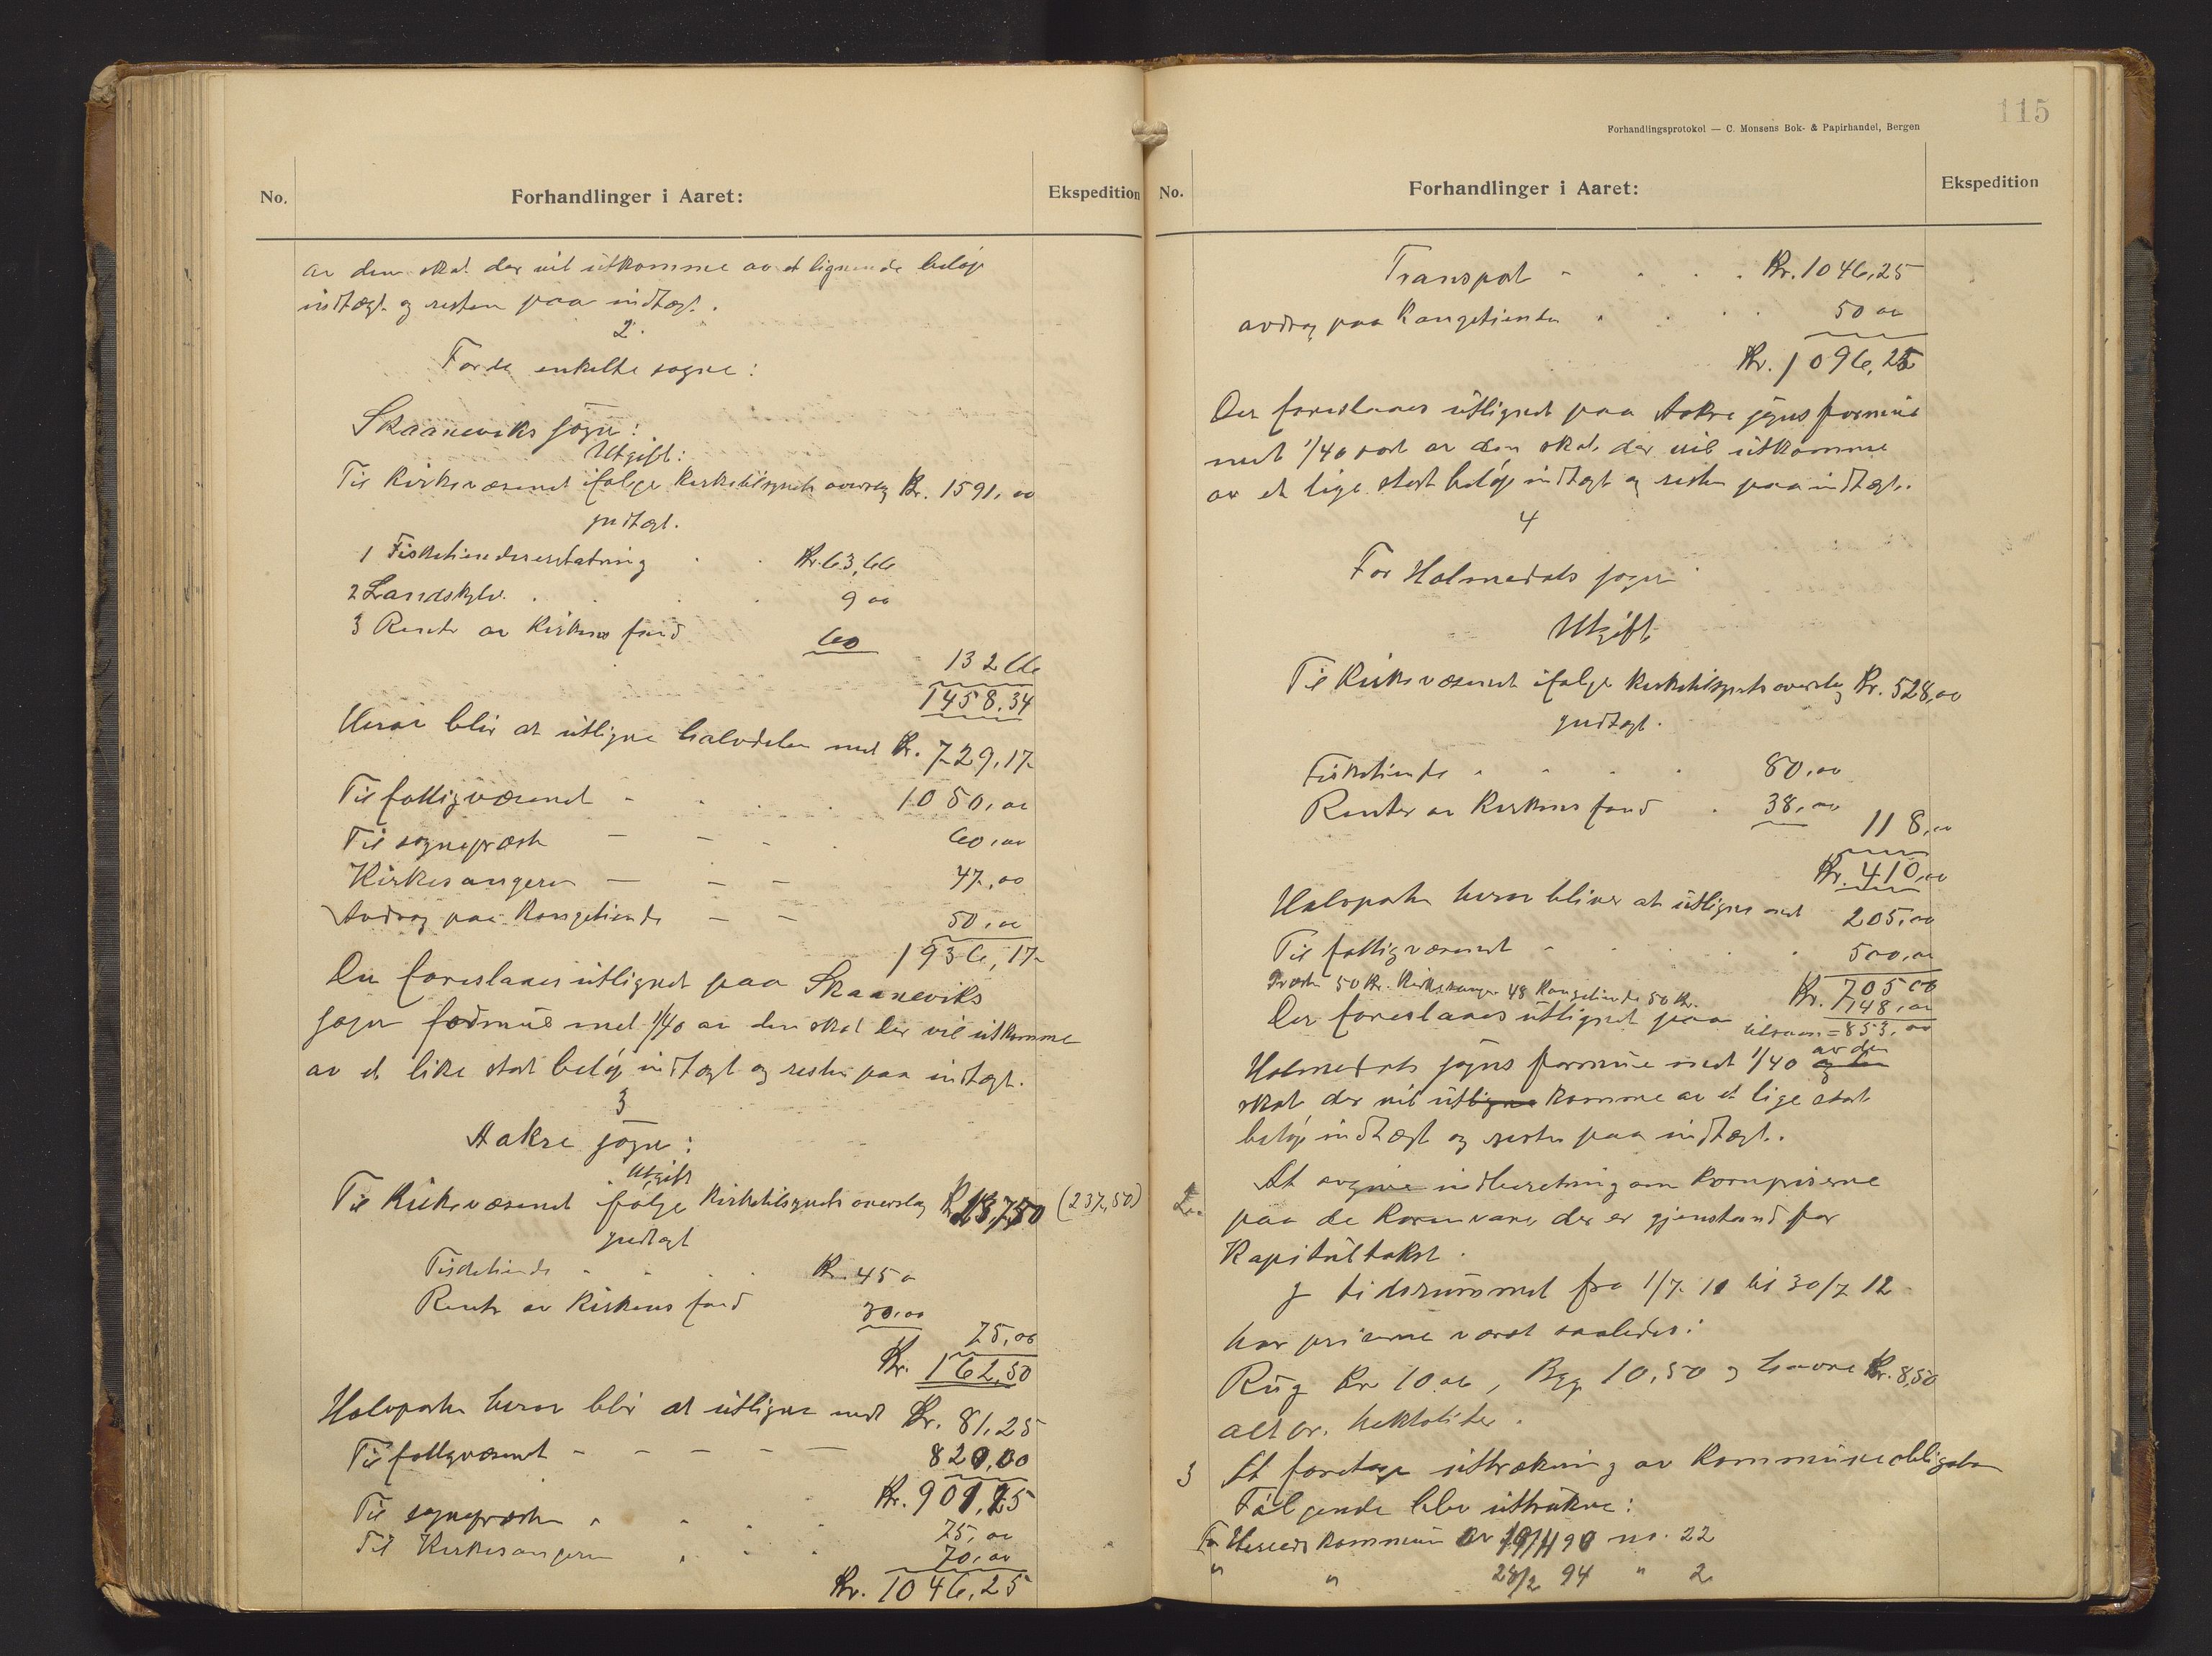 No.
Forhandlinger i Aaret:
Ekspedition
av den skat der vil utkomme av et lignende beløp
indtægt og resten paa indtægt.
2.
For de enkelte sogne:
Skaaneviks sogn:
Utgift:
Til Kirkevæsenet ifølge Kirketilsynets overslag Kr. 1591,00
Indtægt.
1 Fisketiendeerstatning Kr. 63,66
2 Landskyld 9 00
3 Rente av Kirkens fond 60
132 66
1458.34
Herav blir at utligne halvdelen med Kr. 729,17
Til fattigvæsenet 1050,00
Til sogneprest 60,00
Kirkesangeren 47,00
Avdrag paa Kongetiende 50,00
1936,17
Der foreslaaes utlignet paa Skaaneviks
sogn formue med 1/40 av den skat der vil utkomme
av et like stort beløp indtægt og resten paa indtægt.
3
Aakre sogn:
Utgift
Til Kirkevæsenet ifølge Kirketilsynets overslag Kr 237,50 (237,50)
Indtægt
Fisketiende Kr. 45 0
Rente av Kirkens fond 30,00
75,00
Kr. 162,50
Halvparten herav blir at utligne med Kr. 81,25
Til fattigvæsenet 820,00
Kr. 901,25
Til sognepresten 75,00
Til Kirkesangeren 70,00
Kr. 1046,25
115
Forhandlingsprotokol — C. Monsens Bok- & Papirhandel, Bergen
No.
Forhandlinger i Aaret:
Ekspedition
Transport Kr. 1046,25
avdrag paa Kongetiende 50 00
Kr. 1096,25
Der foreslaaes utlignet paa Aakre sogns formue
med 1/40 part av den skat der vil utkomme
av et lige stort beløp indtægt og resten paa indtægt.
4
For Holmedals sogn
Utgift
Til Kirkevæsenet ifølge Kirketilsynets overslag Kr. 528,00
Indtægt.
Fisketiende 80,00
Renter av Kirkens fond 38,00
118,00
Kr. 410,00
Halvparten herav bliver at utligne med 205,00
Til fattigvæsenet 500,00
Kr. 705 00
Presten 50 Kr. Kirkesanger 48 Kongetiende 50 Kr. 148,00
Der foreslaaes utlignet paa tilsam = 853,00
Holmedals sogns formue med 1/40 av den
skat der vil utligne komme av et lige stort
beløp indtægt og resten paa indtægt.
2. At avgive indberetning om Kornpriserne
paa de Kornvarer der er gjenstand for
Kapitultakst.
I tidsrummet fra 1/7. 11 til 30/7 12
har priserne været saaledes:
Rug Kr 10 00, Byg 10,50 og havre Kr. 8,50
alt pr. hektoliter.
3 At foretage uttrækning av Kommuneobligation
Følgende blev uttrukne:
For Herreds Kommun av 19/11 90 no. 22
" " 28/2 94 " 2